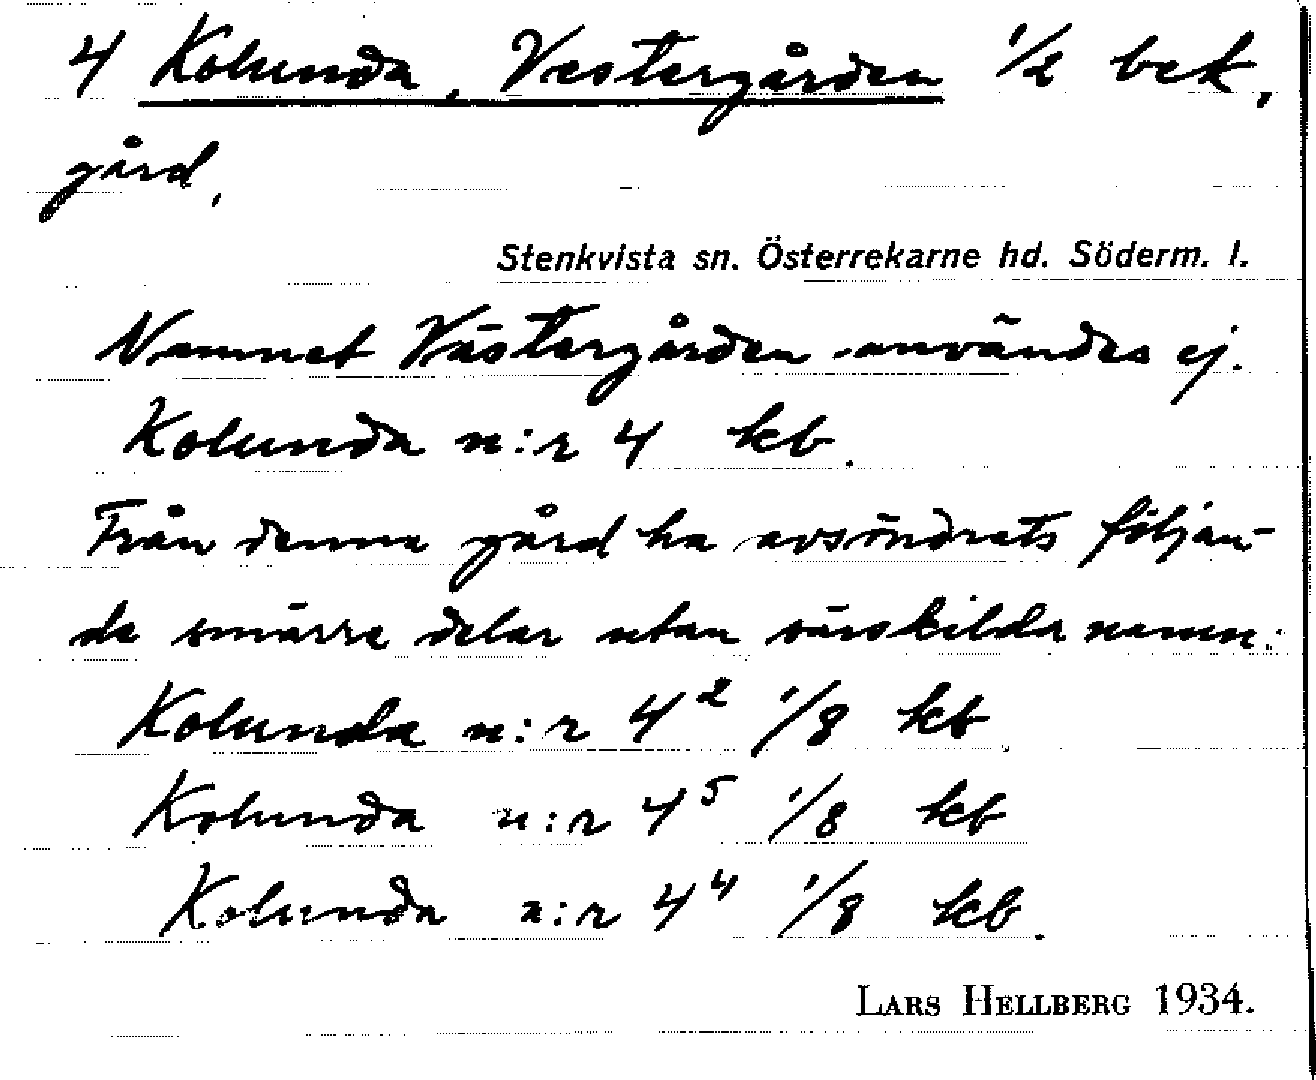 4 Kolunda, Vestergården 1/2 bek,
gård,
Stenkvista sn. Österrekarne hd. Söderm. l.
Namnet Västergården användes ej.
Kolunda n:r 4 kb.
Från denna gård ha avsöndrats följan-
de smärre delar utan särskilda namn:
Kolunda n:r 4² 1/8 kb.
Kolunda n:r 4⁵ 1/8 kb
Kolunda n:r 4⁴ 1/8 kb.
LARS HELLBERG 1934.